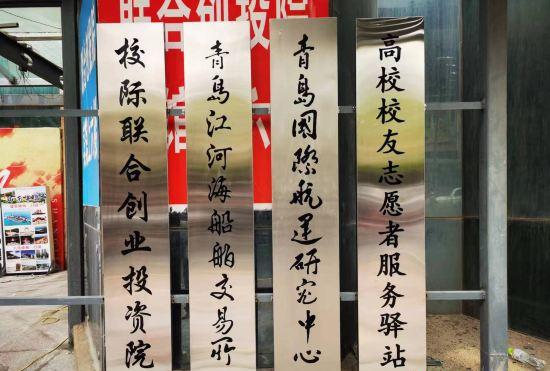 联合创投院
校际联合创业投资院
青岛江河海船舶交易所
青岛国際航运研究中心
高校校友志愿者服务驿站